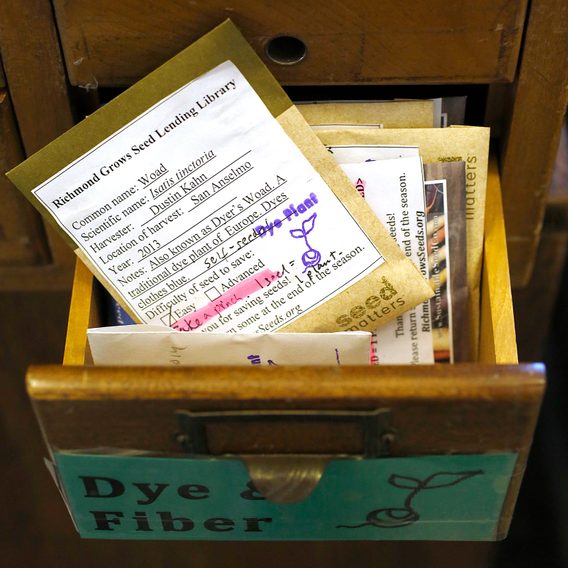 Richmond Grows Seed Lending Library
Common name: Woad
Scientific name: Isatis tinctoria
Harvester: Dustin Kahn
Location of harvest: San Anselmo
Year: 2013
Notes: Also known as Dyer's Woad. A
traditional dye plant of Europe. Dyes
clothes blue. self-seeds
Dye Plant
Difficulty of seed to save:
Easy Advanced
Take a pinch. 1 label = 1 plant.
you for saving seeds!
n some at the end of the season.
Seeds.org
seed
matters
matters
seeds!
end of the season.
Richmond
Seeds.org
Please return
Dye &
Fiber